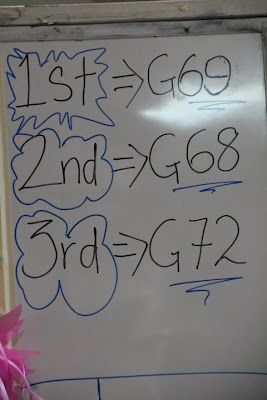 1st ⇒ G69
2nd ⇒ G68
3rd ⇒ G72